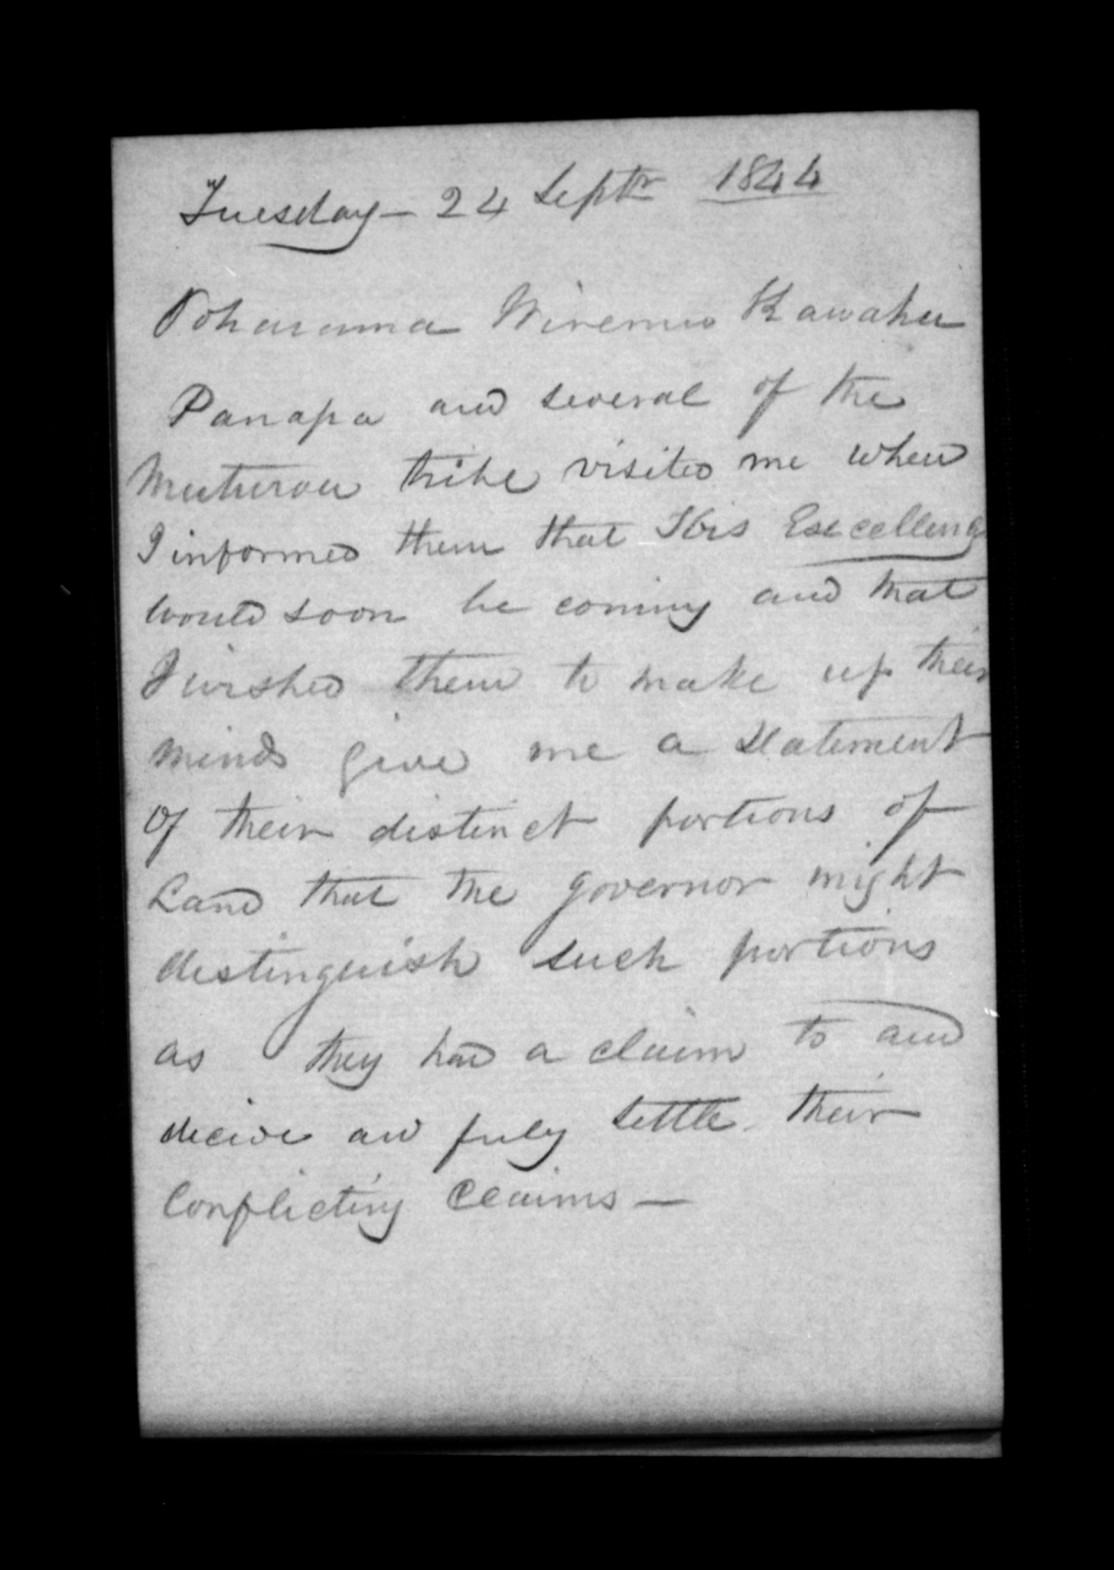 Tuesday - 24 Septr 1844
Poharama Wiremu Kawahu
Panapa and several of the
Muturoa tribe visited me when
I informed them that His Excellency
would soon be coming and that
I wished them to make up their
minds give me a statement
of their distinct portions of
Land that the governor might
distinguish such portions
as they had a claim to and
decide and fuly settle their
Conflicting Claims -